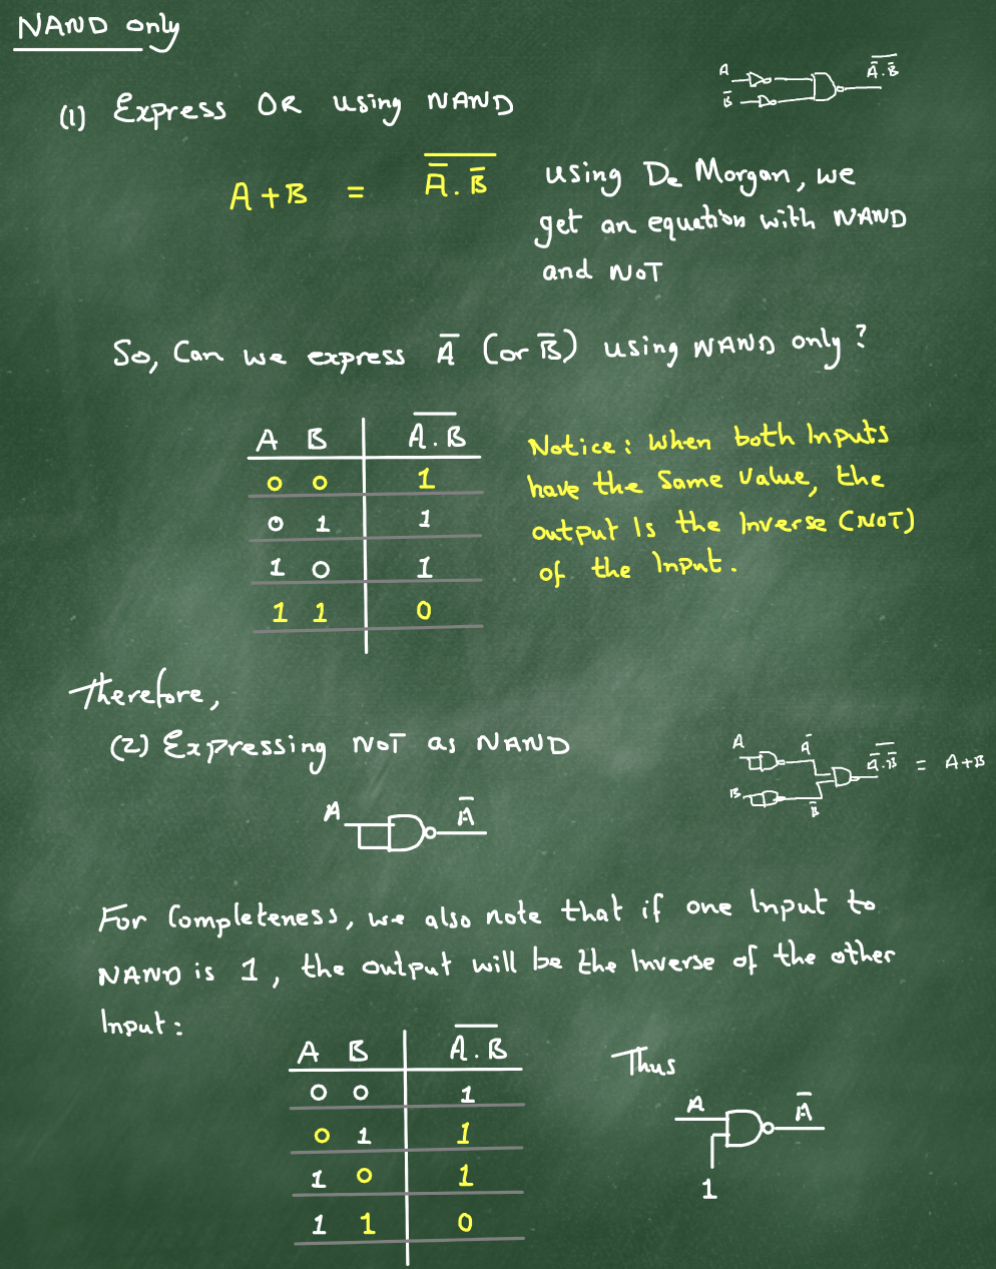 NAND only
A
B̅
A̅.B̅ (overlined)
(1) Express OR using NAND
A + B = A̅.B̅ (overlined)
using De Morgan, we
get an equation with NAND
and NOT
So, Can we express A̅ (or B̅) using NAND only?
A B | A.B (overlined)
0 0 | 1
0 1 | 1
1 0 | 1
1 1 | 0
Notice: When both Inputs
have the Same Value, the
output Is the Inverse (NOT)
of the Input.
Therefore,
(2) Expressing NOT as NAND
A A̅
A A̅
B B̅
A̅.B̅ (overlined) = A+B
For Completeness, we also note that if one Input to
NAND is 1, the output will be the Inverse of the other
Input:
A B | A.B (overlined)
0 0 | 1
0 1 | 1
1 0 | 1
1 1 | 0
Thus
A A̅
1